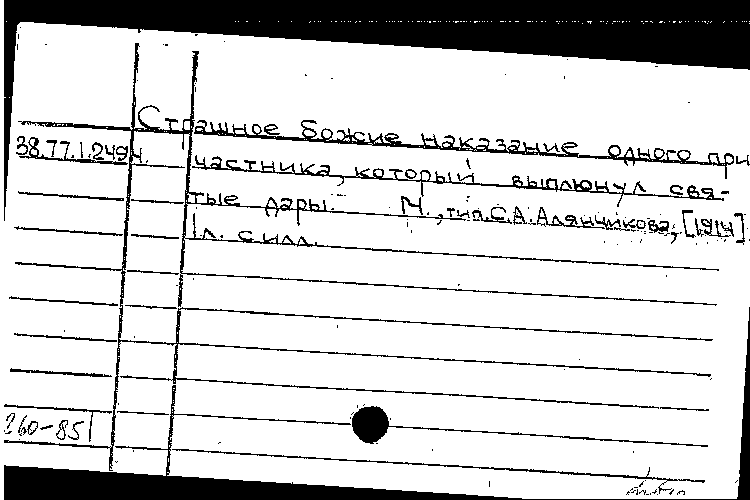 Страшное божие наказание одного при
38.77.1.2494. частника, который выплюнул свя-
тые дары. М., тип. С.А. Алянчикова, [1914]
1 л. с илл.
260-85